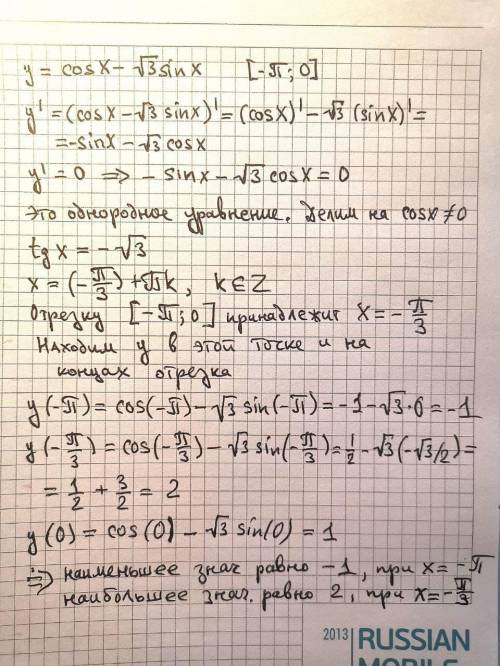 y = cosx − √3 sinx [-π; 0]
y' = (cosx − √3 sinx)' = (cosx)' − √3 (sinx)' =
= -sinx − √3 cosx
y' = 0 ⇒ − sinx − √3 cosx = 0
Это однородное уравнение. Делим на cosx ≠ 0
tg x = − √3
x = (−π/3) + πk, k ∈ Z
Отрезку [−π; 0] принадлежит x = − π/3
Находим y в этой точке и на
концах отрезка
y(−π) = cos(−π) − √3 sin(−π) = −1 − √3 · 0 = −1
y(−π/3) = cos(−π/3) − √3 sin(−π/3) = 1/2 − √3 (−√3/2) =
= 1/2 + 3/2 = 2
y(0) = cos(0) − √3 sin(0) = 1
⇒ наименьшее знач равно −1, при x = −π
наибольшее знач. равно 2, при x = −π/3
2013 RUSSIAN